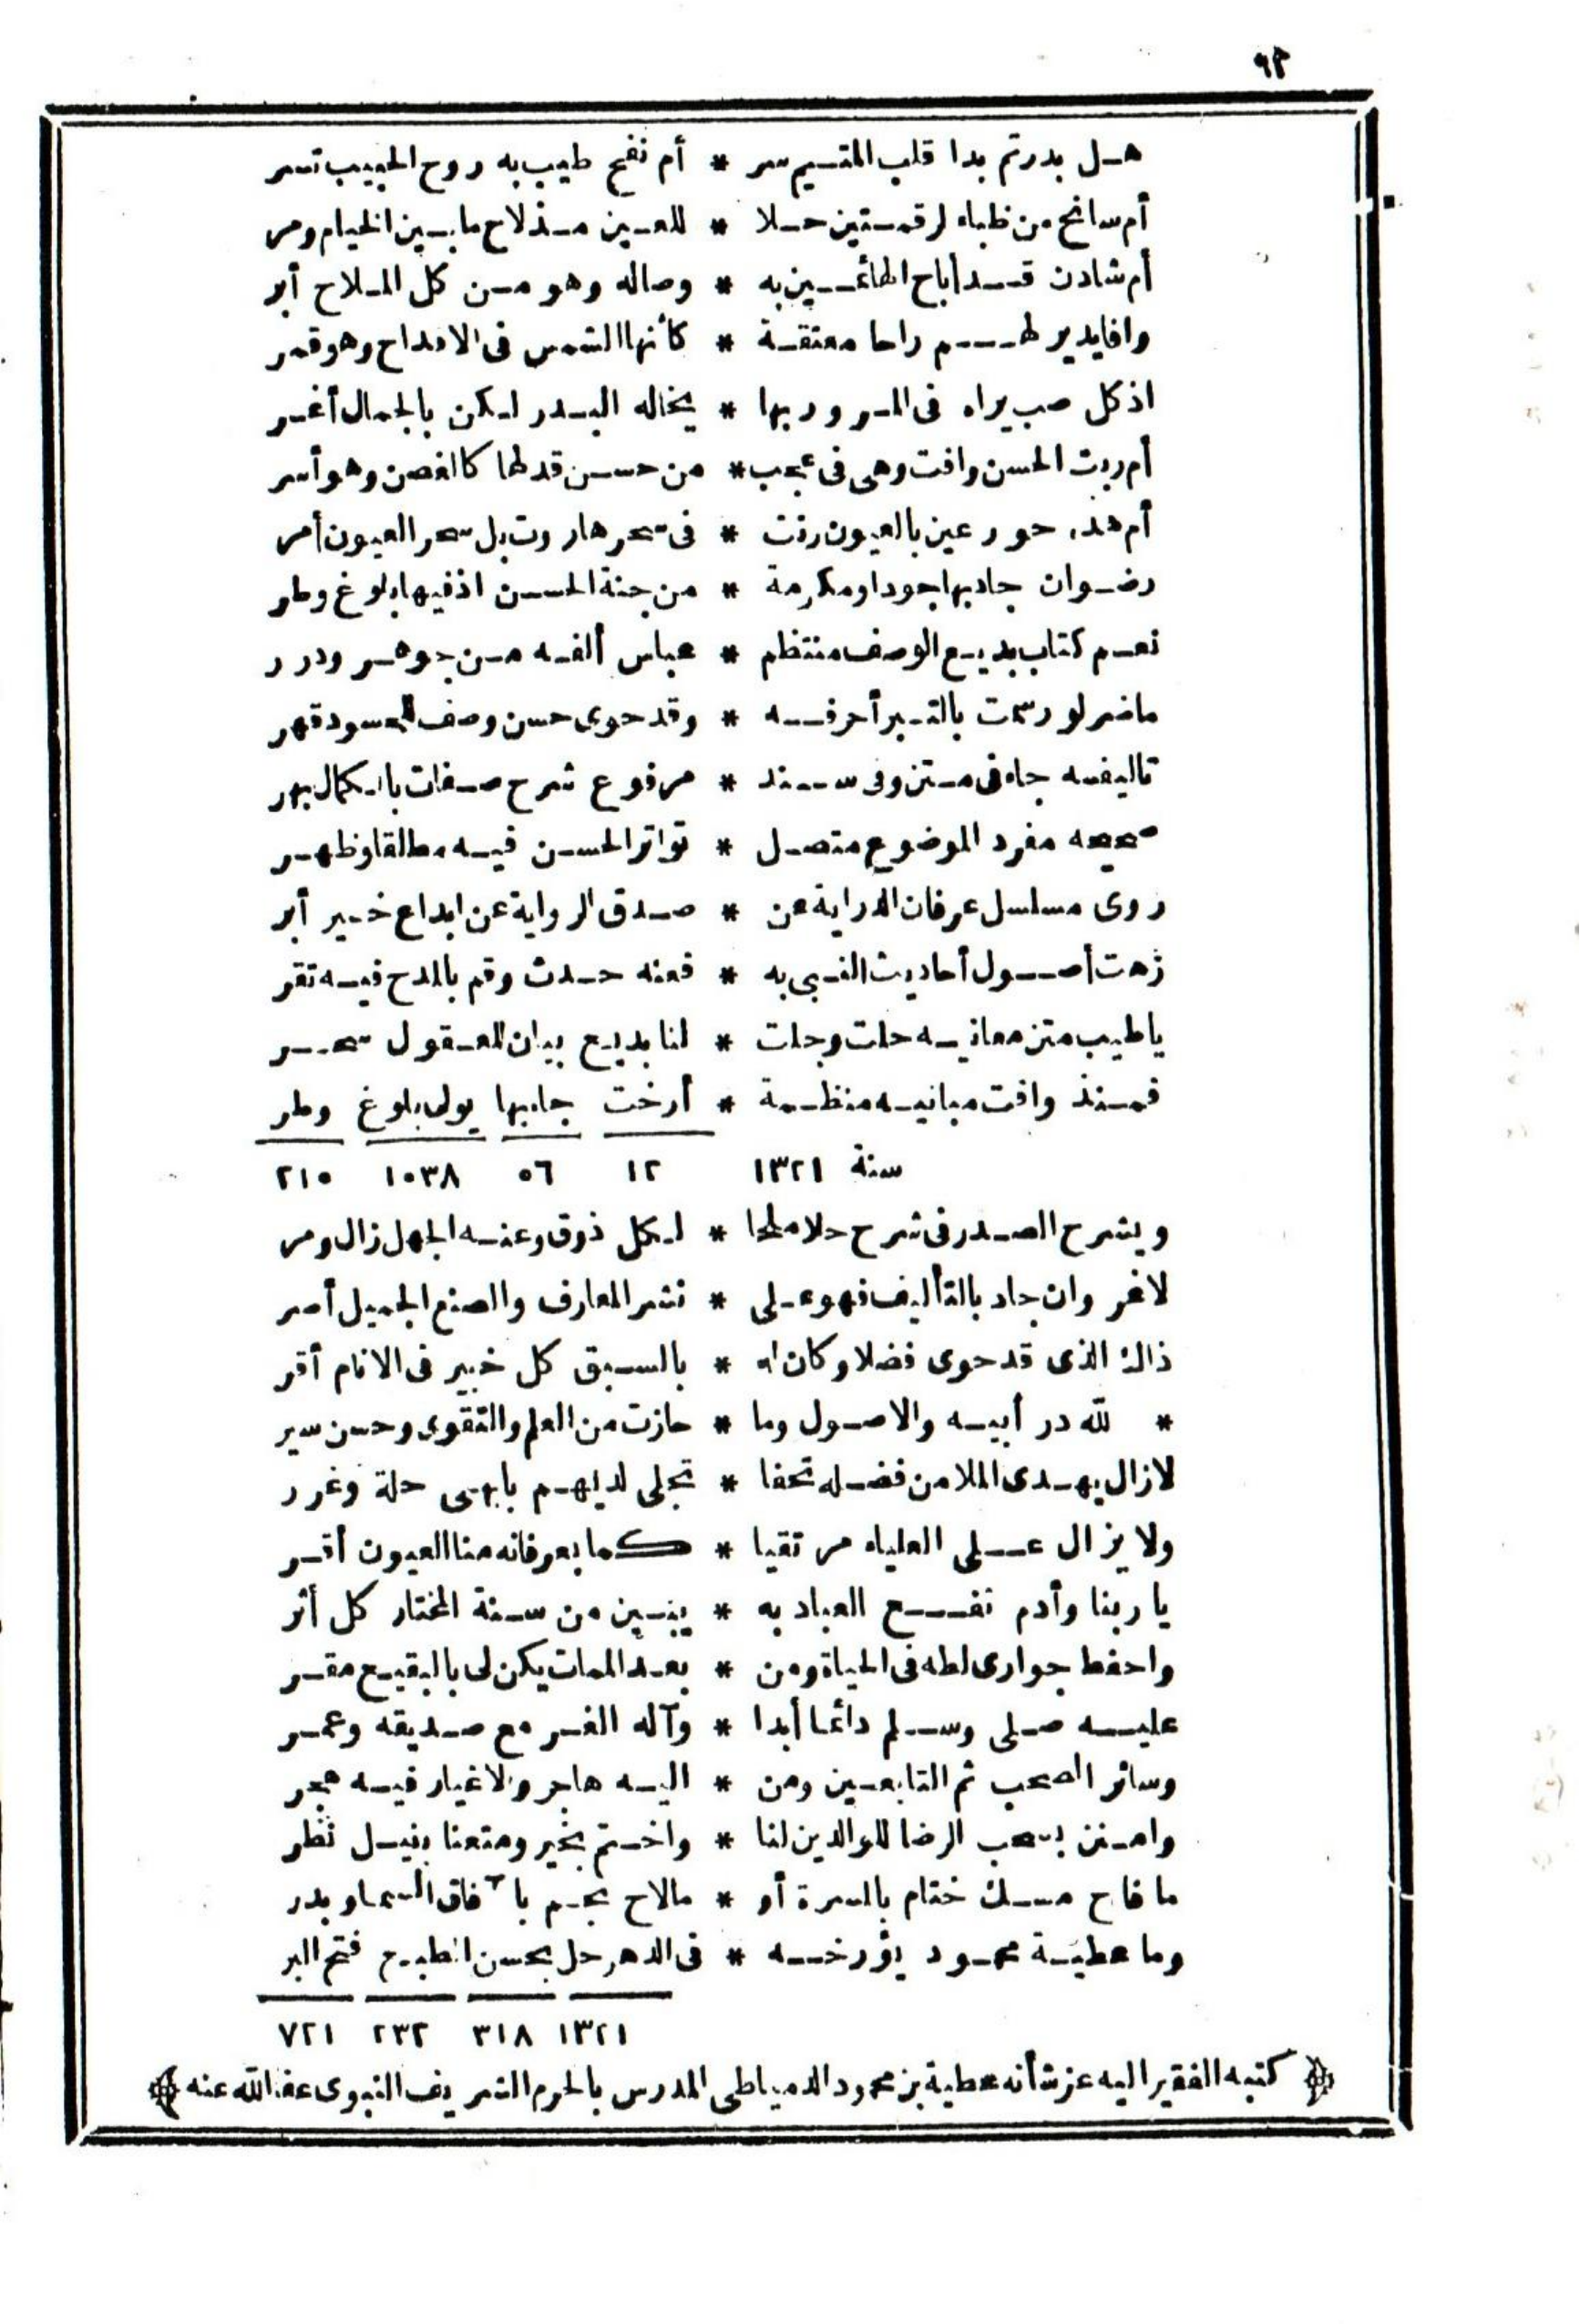 ٩٢
هل بدر تم بدا قلب المتيم سر * أم نفح طيب به روح الحبيب تسر
أم سانح من ظباء لرقمتين حلا * للعين مذ لاح ما بين الخيام ومر
أم شادن قد أباح الهائمين به * وصاله وهو من كل الملاح أبر
وافا يدير لهم راحا معتقة * كأنها الشمس فى الاقداح وهو قمر
اذ كل صب يراه فى المرور بها * يخاله البدر لكن بالجمال أغر
أم ربت الحسن وافت وهى فى عجب * من حسن قد لها كالغصن وهو أسر
أم هذه حور عين بالعيون رنت * فى سحر هاروت بل سحر العيون أمر
رضوان جاد بها جودا ومكرمة * من جنة الحسن اذ فيها بلوغ وطر
نعم كتاب بديع الوصف منتظم * عباس ألفه من جوهر ودرر
ماضر لو رسمت بالتبر أحرفه * وقد حوى حسن وصف للحسود قهر
تاليفه جاء فى متن وفى سند * مرفوع شرح صفات بالكمال بهر
صحيحه مفرد الموضوع متصل * تواتر الحسن فيه مطلقا وظهر
روى مسلسل عرفان الدراية عن * صدق الرواية عن ابداع خير أبر
زهت أصول أحاديث النبى به * فعنه حدث وقم بالمدح فيه تقر
ياطيب متن معانيه حلت وجلت * لنا بديع بيان للعقول سحر
فمنذ وافت مبانيه منظمة * أرخت جابها يولى بلوغ وطر
سنة ١٣٢١ ١٢ ٥٦ ١٠٣٨ ٢١٠
ويشرح الصدر فى شرح حلا ملحا * لكل ذوق وعنه الجهل زال ومر
لاغر وان جاد بالتأليف فهو على * نشر المعارف والصنع الجميل أصر
ذاك الذى قد حوى فضلا وكان له * بالسبق كل خبير فى الانام أقر
* لله در أبيه والاصول وما * حازت من العلم والتقوى وحسن سير
لازال يهدى الملا من فضله تحفا * تجلى لديهم بابهى حلة وغرر
ولا يزال على العلياء مرتقيا * كما بعرفانه منا العيون أقر
يا ربنا وأدم نفع العباد به * يبين من سنة المختار كل أثر
واحفظ جوارى لطه فى الحياة ومن * بعد الممات يكن لى بالبقيع مقر
عليه صلى وسلم دائما أبدا * وآله الغر مع صديقه وعمر
وسائر الصحب ثم التابعين ومن * اليه هاجر والاغيار فيه هجر
وامنن بسحب الرضا للوالدين لنا * واختم بخير ومتعنا بنيل نظر
ما فاح مسك ختام بالمسرة أو * مالاح نجم با آفاق السما وبدر
وما عطية محمود يؤرخه * فى الدهر حل بحسن الطبع فتح البر
١٣٢١ ٣١٨ ٢٣٢ ٧٢١
﴿ كتبه الفقير اليه عز شأنه عطية بن محمود الدمياطى المدرس بالحرم الشريف النبوى عفا الله عنه ﴾